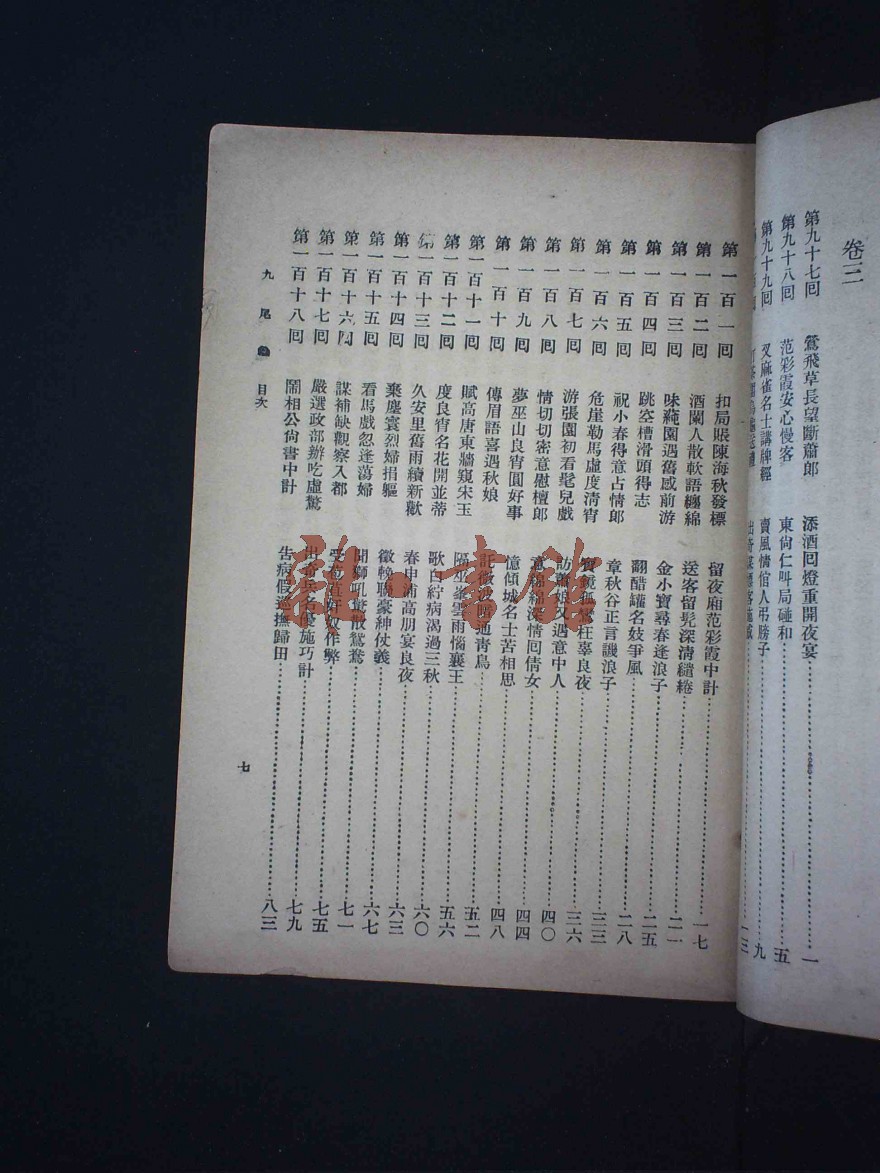 卷三
第九十七囘 鶯飛草長望斷蕭郎 添酒囘燈重開夜宴 一
第九十八囘 范彩霞安心慢客 東尙仁叫局碰和 五
第九十九囘 叉麻雀名士講牌經 賣風情倌人弔膀子 九
一三
第一百一囘 扣局賬陳海秋發標 留夜廂范彩霞中計 一七
第一百二囘 酒闌人散軟語纏綿 送客留髡深清繾綣 二一
第一百三囘 味蒓園遇舊感前游 金小寶尋春逢浪子 二五
第一百四囘 跳空槽滑頭得志 翻醋罐名妓爭風 二八
第一百五囘 祝小春得意占情郎 章秋谷正言譏浪子 三三
第一百六囘 危崖勒馬虛度淸宵 寶鏡孤鸞枉辜良夜 三六
第一百七囘 游張園初看髦兒戲 訪蕭娘又遇意中人 四〇
第一百八囘 情切切密意慰檀郎 意綿綿深情囘倩女 四四
第一百九囘 夢巫山良宵圓好事 憶傾城名士苦相思 四八
第一百十囘 傳眉語喜遇秋娘 託微波圖通靑鳥 五二
第一百十一囘 賦高唐東牆窺宋玉 隔巫峯雲雨惱襄王 五六
第一百十二囘 度良宵名花開並蒂 歌白紵病渴過三秋 六〇
第一百十三囘 久安里舊雨續新歡 春申浦高朋宴良夜 六三
第一百十四囘 棄塵寰烈婦捐軀 徵輓聯豪紳仗義 六七
第一百十五囘 看馬戲忽逢蕩婦 開獅吼驚散鴛鴦 七一
第一百十六囘 謀補缺觀察入都 受奇直奸奴作弊 七五
第一百十七囘 嚴選政部辦吃虛驚 出奇兵名優施巧計 七九
第一百十八囘 鬧相公尙書中計 告病假巡撫歸田 八三
九尾 目次
七